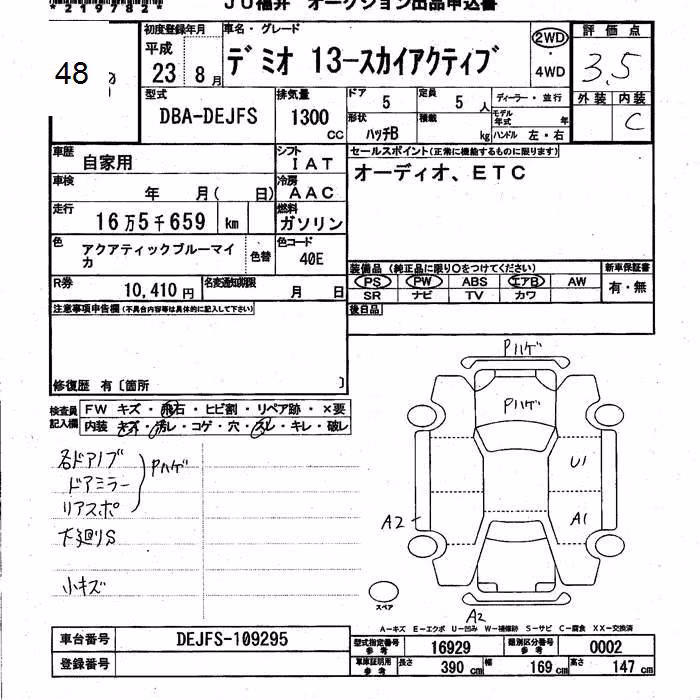 *219782*
JU福井 オークション出品申込書
48
初度登録年月 車名・グレード 評価点
平成 23 8月 デミオ 13-スカイアクティブ 2WD・4WD 3.5
型式 排気量 ドア 5 定員 5人 ディーラー・並行 外装 内装
DBA-DEJFS 1300 CC 形状 ハッチB 積載 kg モデル年式 年 C
ハンドル 左・右
車歴 自家用 シフト IAT セールスポイント(正常に機能するものに限ります)
車検 年 月( 日) 冷房 AAC オーディオ、ETC
走行 16万5千659 km 燃料 ガソリン
色 アクアティックブルーマイカ 色替 色コード 40E
装備品 (純正品に限り○をつけてください) 新車保証書
R券 10,410円 名変通知期限 月 日 PS・PW・ABS・エアB・AW 有・無
SR ナビ TV カワ
注意事項申告欄(不具合内容等は具体的に記入して下さい) 後日品
修復歴 有〔箇所 〕
検査員記入欄 FW キズ・飛石・ヒビ割・リペア跡・×要
内装 キズ・汚レ・コゲ・穴・スレ・キレ・破レ
Pハゲ
Pハゲ
各ドアノブ
ドアミラー Pハゲ
リアスポ
下廻りS
小キズ
U1
A1
A2
スペア
A2
A-キズ E-エクボ U-凹み W-補修跡 S-サビ C-腐食 XX-交換済
車台番号 DEJFS-109295 型式指定番号 参考 16929 類別区分番号 参考 0002
登録番号 車庫証明用 参考 長さ 390 cm 幅 169 cm 高さ 147 cm